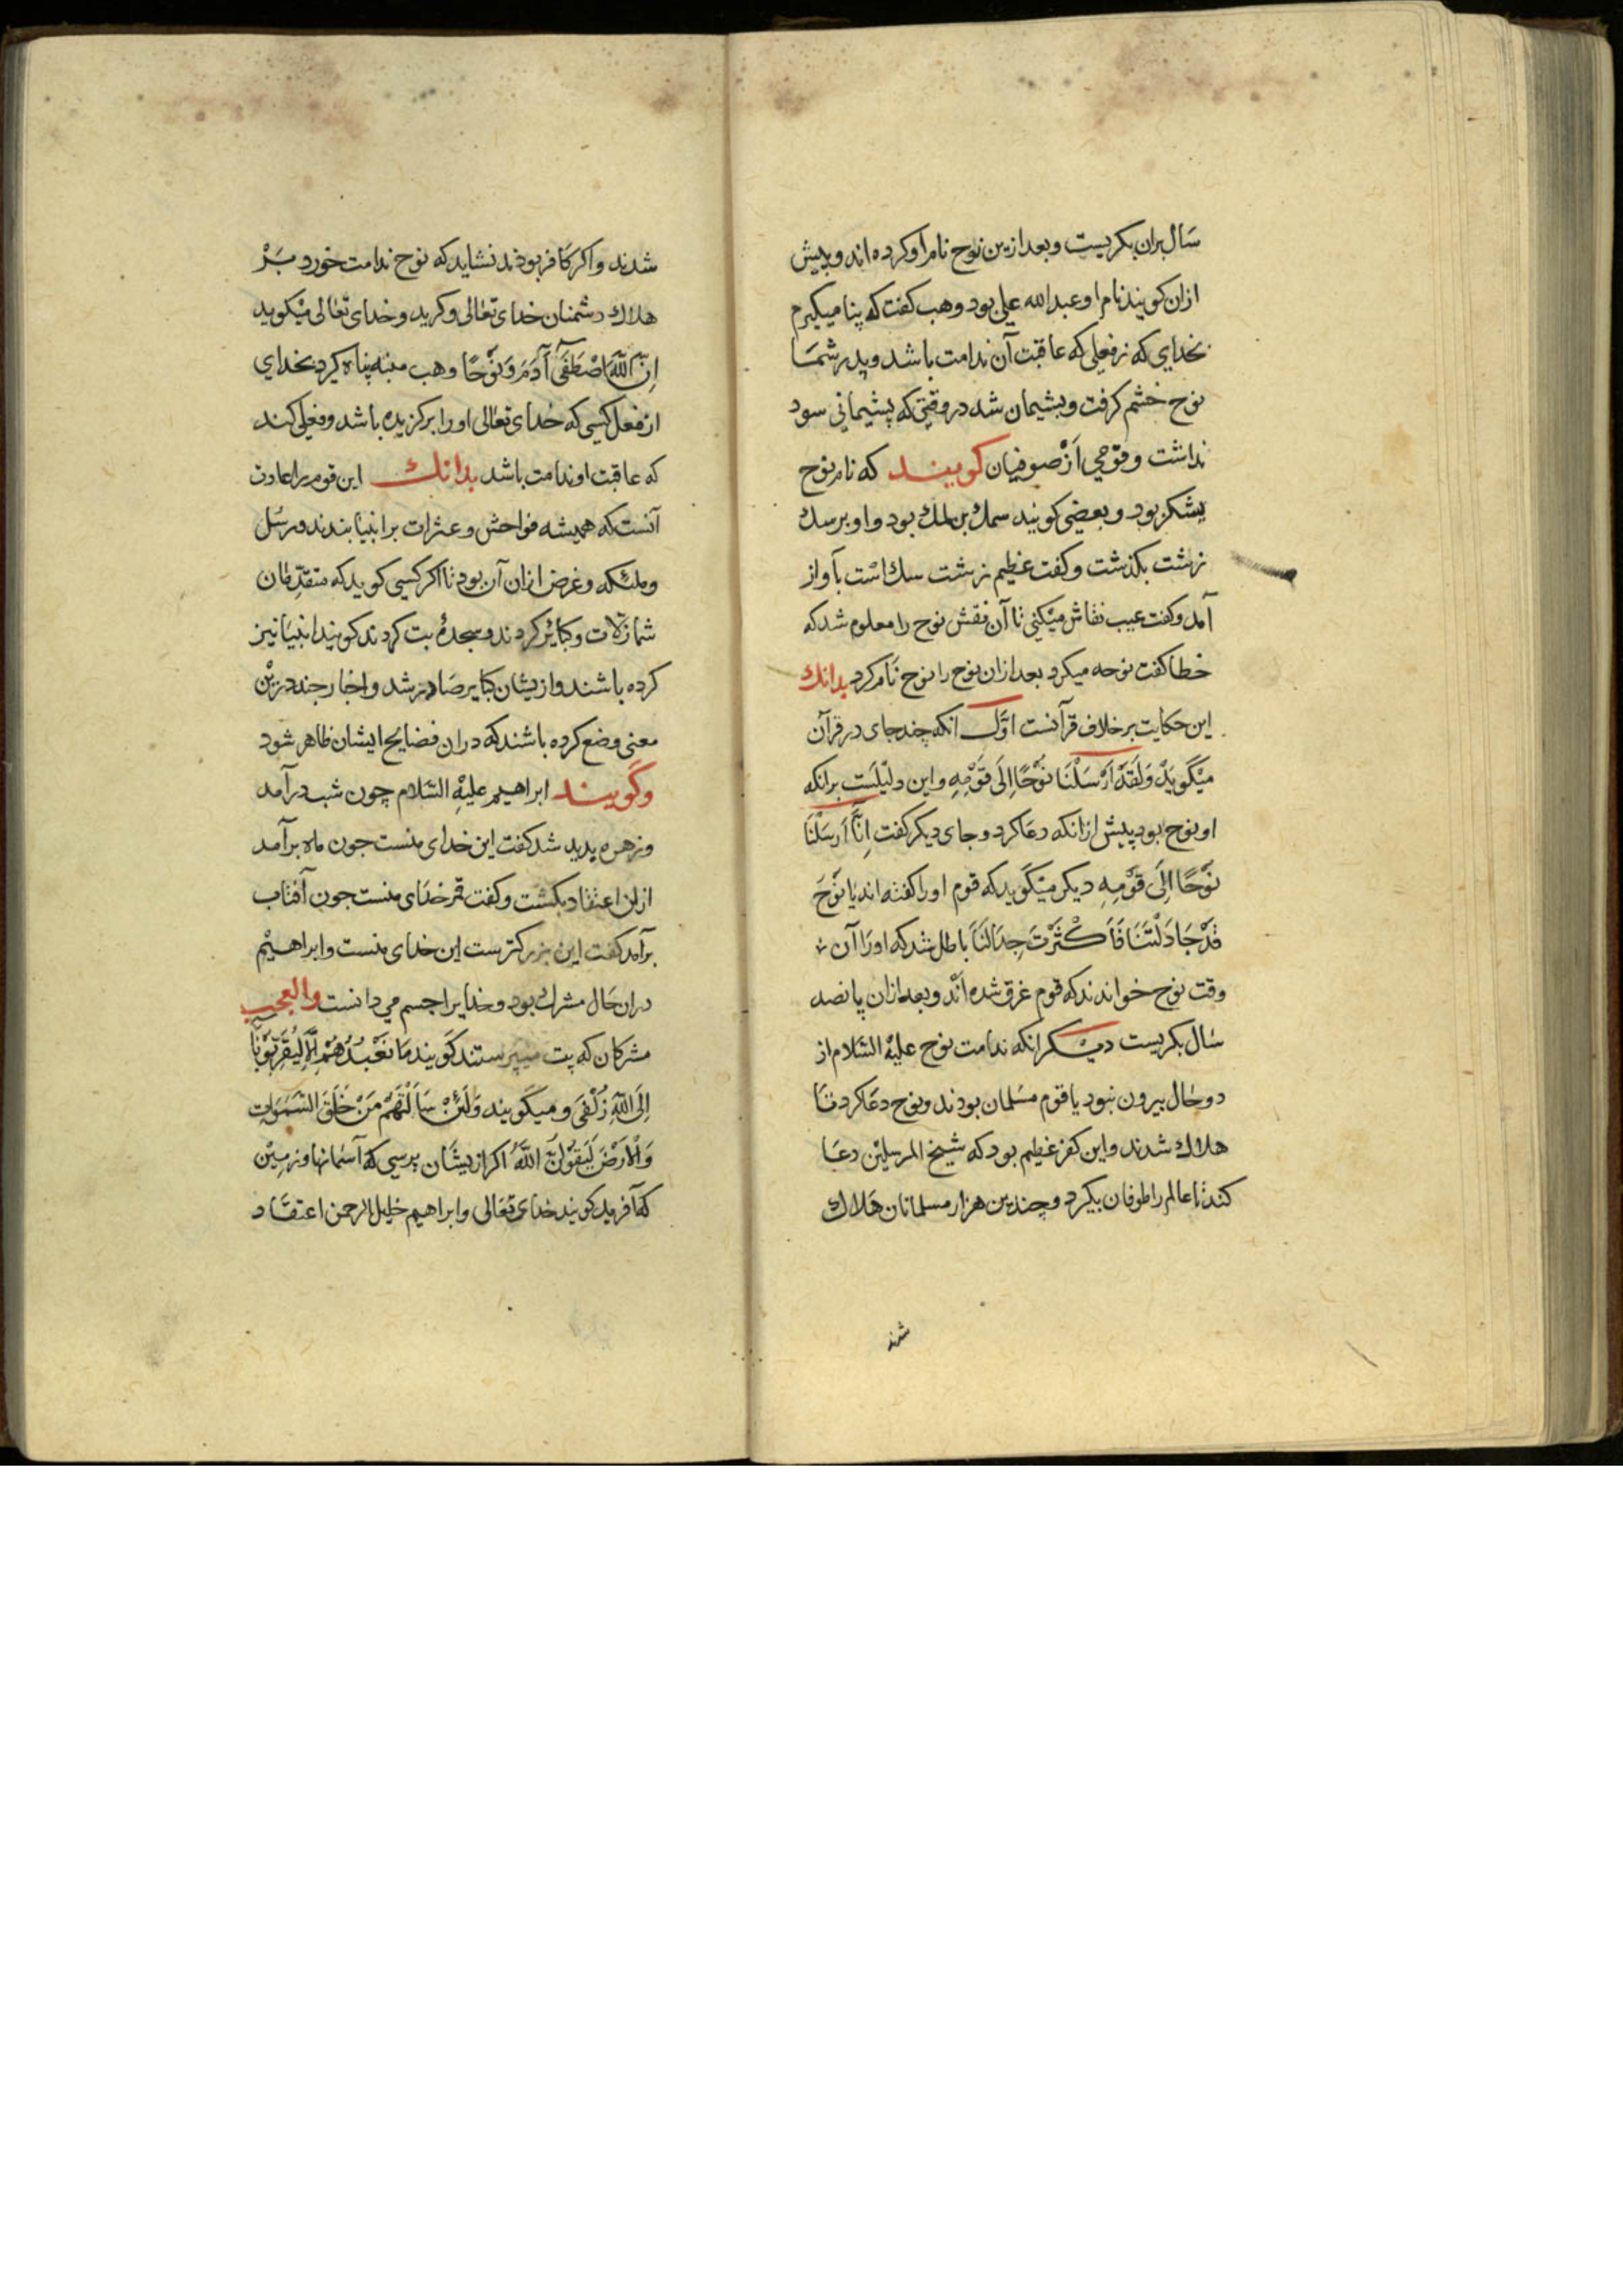 سال بران بکریست و بعد ازین نوح نام او کرده اند و پیش
ازان کویند نام او عبدالله علی بود وهب کفت که پنا میکیرم
بخدای که زفعلی که عاقبت آن ندامت باشد و پدر شما
نوح خشم کرفت و پشیمان شد در وقتی که پشیمانی سود
نداشت و قومی از صوفیان کویند که نام نوح
یشکر بود و بعضی کویند سمک بن لمک بود و او بر سک
زشت بکذشت و کفت عظیم زشت سک است بآواز
آمد و کفت عیب نقاش میکنی تا آن نقش نوح را معلوم شد که
خطا کفت نوحه میکرد بعد ازان نوح را نوح نام کرد بدانک
این حکایت بر خلاف قرآنست اوّل انکه چند جای در قرآن
میکوید وَلَقَدْ اَرْسَلْنَا نُوْحًا اِلَی قَوْمِهِ و این دلیلست برانکه
او نوح بود پیش ازانکه دعا کرد و جای دیکر کفت اِنَّا اَرْسَلْنَا
نُوْحًا اِلَی قَوْمِهِ دیکر میکوید که قوم او را کفته اند یَا نُوْحُ
قَدْ جَادَلْتَنَا فَاَکْثَرْتَ جِدَالَنَا باطل شد که او را آن
وقت نوح خواندند که قوم غرق شده اند و بعد ازان پانصد
سال بکریست دیکر انکه ندامت نوح علیه السّلام از
دو حال بیرون نبود یا قوم مسلمان بودند و نوح دعا کرد تا
هلاک شدند و این کفر عظیم بود که شیخ المرسلین دعا
کند تا عالم را طوفان بکیرد و چندین هزار مسلمانان هلاک
شدند
شدند و اکر کافر بودند نشاید که نوح ندامت خورد بر
هلاک دشمنان خدای تعالی و کرید و خدای تعالی میکوید
اِنَّ اللّهَ اصْطَفَی آدَمَ وَ نُوْحًا وهب منبه پناه کیرد بخدای
از فعل کسی که خدای تعالی او را برکزیده باشد و فعلی کند
که عاقبت او ندامت باشد بدانک این قوم را عادت
آنست که همیشه فواحش و عثرات بر انبیا بندند و رسل
و ملئکه و غرض ازان آن بود تا اکر کسی کوید که متقدّمان
شما زلات و کبائر کردند و سجدۀ بت کردند کویند انبیا نیز
کرده باشند و ازیشان کبایر صادر شد و اخبار چند درین
معنی وضع کرده باشند که دران فضایح ایشان ظاهر شود
و کویند ابراهیم علیه السّلام چون شب درآمد
و زهره پدید شد کفت این خدای منست چون ماه برآمد
ازان اعتقاد بکشت و کفت قمر خدای منست جون آفتاب
برآمد کفت این بزرکترست این خدای منست و ابراهیم
دران حال مشرک بود و خدایرا جسم می دانست والعجب
مشرکان که بت میپرستند کویند مَا نَعْبُدُهُمْ اِلَّا لِیُقَرِّبُوْنَا
اِلَی اللّهِ زُلْفَی و میکویند وَلَئِنْ سَاَلْتَهُمْ مَنْ خَلَقَ السَّمَوَاتِ
وَالْاَرْضَ لَیَقُوْلُنَّ اللّهُ اکر ازیشان پرسی که آسمانها و زمین
که آفرید کویند خدای تعالی و ابراهیم خلیل الرحمن اعتقاد